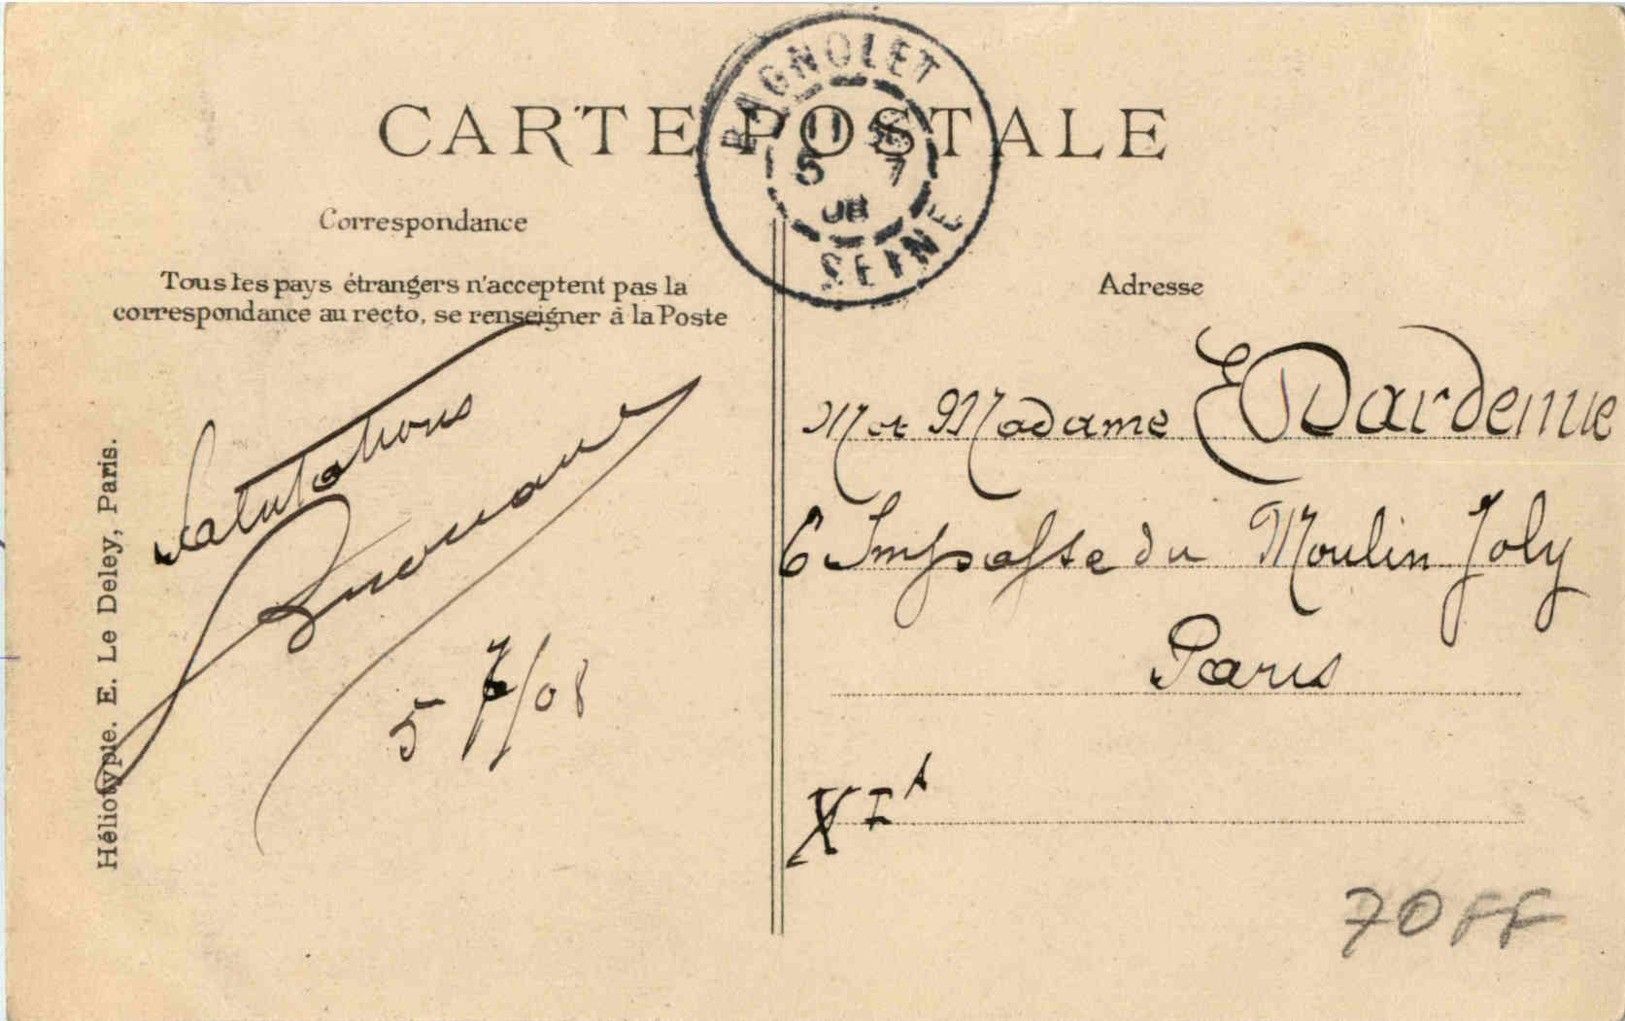 CARTE POSTALE
BAGNOLET
11 35
5 7
08
SEINE
Correspondance
Tous les pays étrangers n'acceptent pas la
correspondance au recto, se renseigner à la Poste
Salutations
5 7/08
Héliotypie. E. Le Deley, Paris.
Adresse
M et Madame E Dardenne
6 Impasse du Moulin Joly
Paris
XIA
70FF